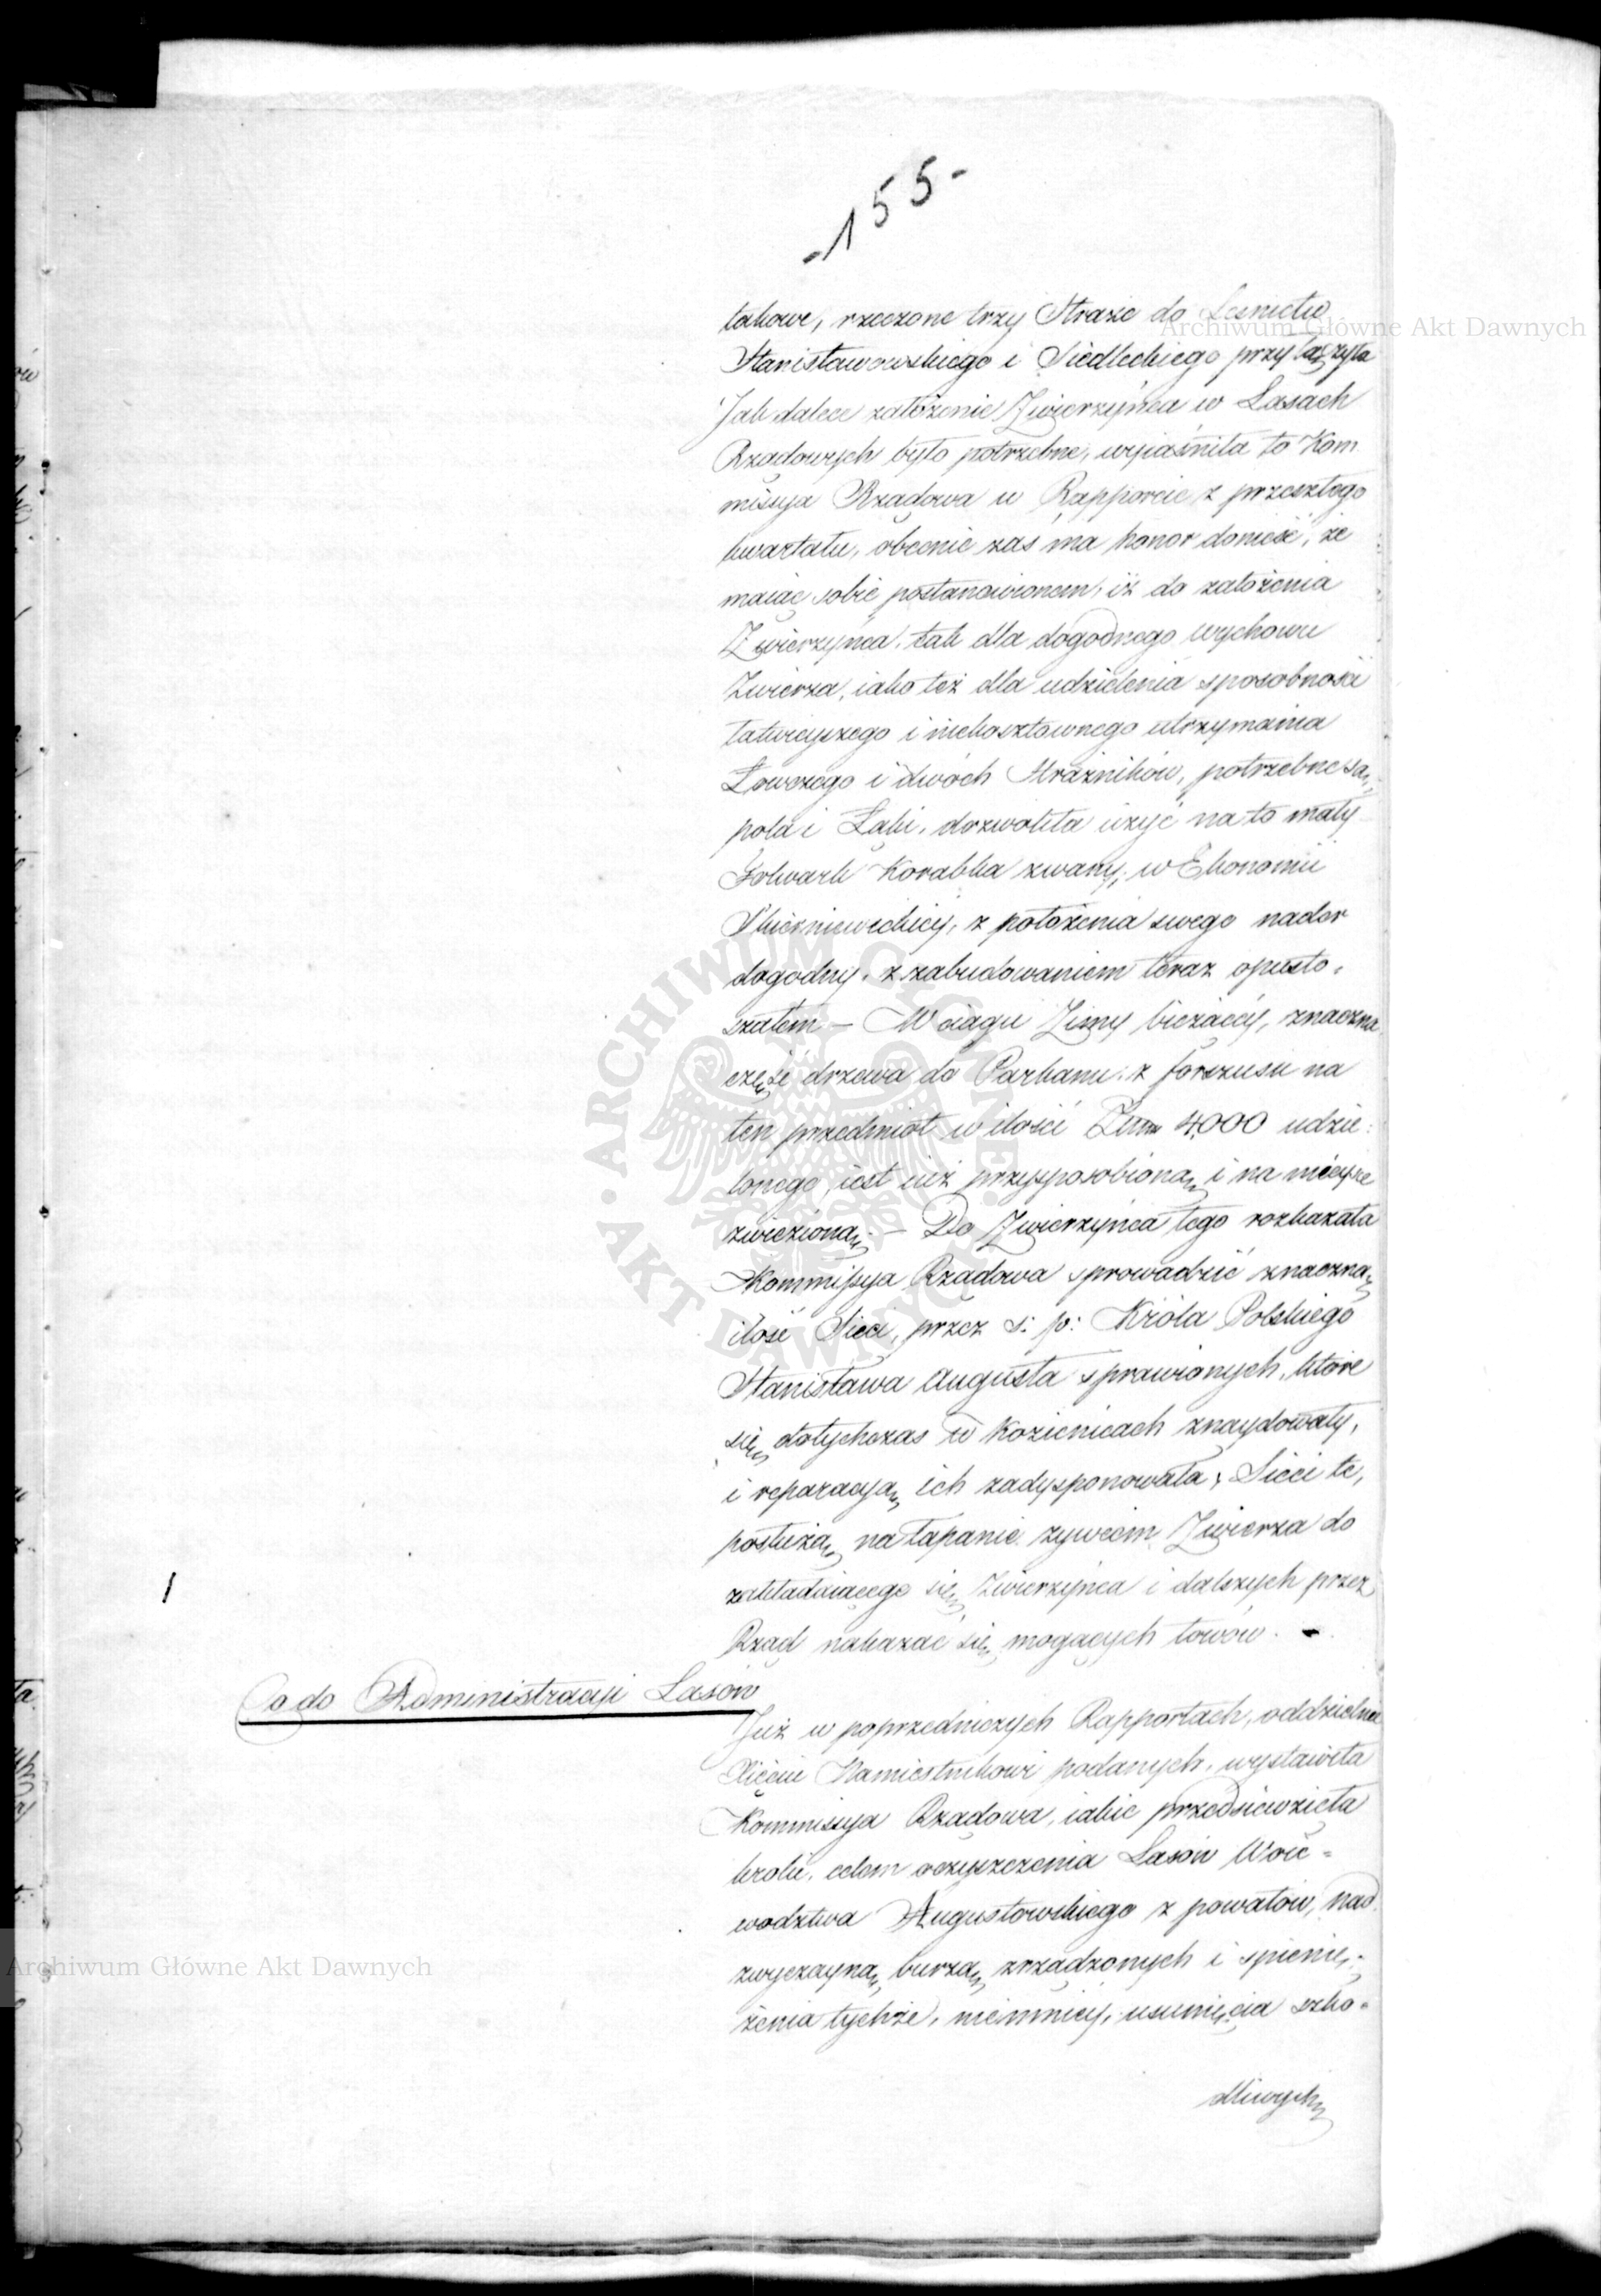 -155-
takowe, rzeczone trzy Straże do Lesnictw
Stanisławowskiego i Siedleckiego przyłączyła
Jak dalece założenie Zwierzyńca w Lasach
Rządowych było potrzebne, wyiaśniła to Kom
missya Rządowa w Rapporcie z przeszłego
kwartału, obecnie zaś ma honor donieść, że
maiąc sobie postanowionem, iż do założenia
Zwierzyńca, tak dla dogodnego wychowu
Zwierza, iako też dla udzielenia sposobności
łatwieyszego i niekosztownego utrzymania
Łowczego i dwóch Strażników, potrzebne są,
pola i Łąki, dozwoliła użyć na to mały
Folwark Korabka zwany, w Ekonomii
Skierniewickiey, z położenia swego nader
dogodny, z zabudowaniem teraz opusto=
szałem — W ciągu Zimy bieżącey, znaczna
część drzewa do Parkanu, z forszusu na
ten przedmiot w ilości 4,000 udzie=
lonego, iest iuż przysposobioną i na mieysce
zwiezioną. — Do Zwierzyńca tego rozkazała
Kommissya Rządowa sprowadzić znaczną
ilość Sieci, przez ś: p: Króla Polskiego
Stanisława Augusta sprawionych, które
się dotychczas w Kozienicach znaydowały,
i reparacyą ich zadysponowała; Sieci te,
posłużą na łapanie żywcem Zwierza do
zakładaiącego się Zwierzyńca i dalszych przez
Rząd nakazać się mogących łowów. —
Co do Administracyi Lasów
Już w poprzedniczych Rapportach, oddzielnie
Xięciu Namiestnikowi podanych, wystawiła
Kommissya Rządowa, iakie przedsięwzięła
kroki, celem oczyszczenia Lasów Woie=
wodztwa Augustowskiego z powałów, nad
zwyczayną burzą zrządzonych i spienię=
żenia tychże, niemniey, usunięcia szko=
dliwych
Archiwum Główne Akt Dawnych
Archiwum Główne Akt Dawnych
ARCHIWUM GŁÓWNE · AKT DAWNYCH ·